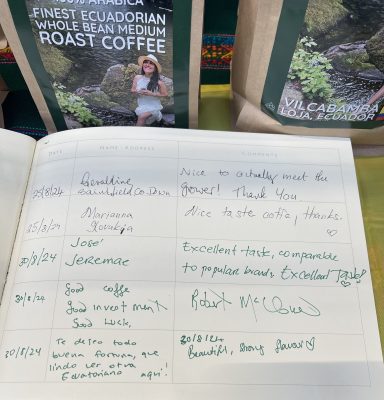 100% ARABICA
FINEST ECUADORIAN
WHOLE BEAN MEDIUM
ROAST COFFEE
VILCABAMBA
LOJA, ECUADOR
DATE NAME - ADDRESS COMMENTS
25/8/24 Geraldine Nice to actually meet the
Co Down grower! Thank You
25/8/24 Marianna Nice taste coffie, thanks.
Slovakia
30/8/24 José Excellent taste, comparable
Jeremae to popular brands. Excellent
30/8/24 Good coffe Robert
Good investment
Good Luck,
30/8/24 Te deseo todo 30/8/24
buena fortuna, que Beautiful, strong flavour
lindo ver otra
Ecuatoriano aqui!